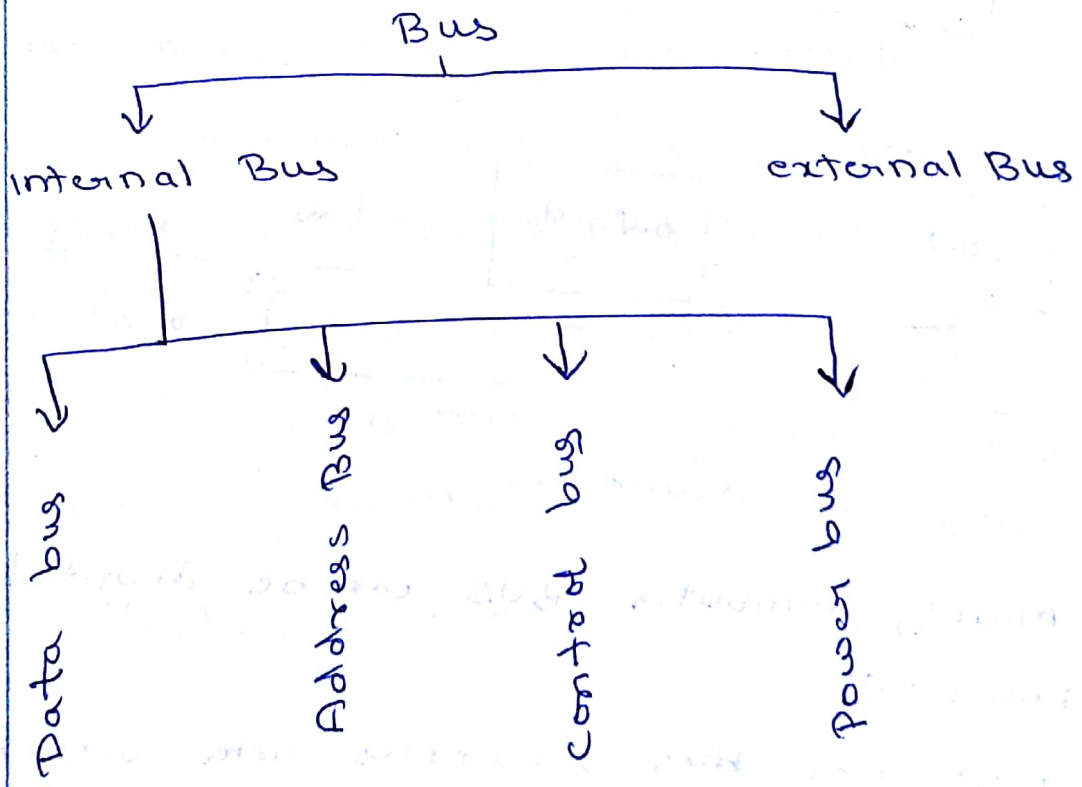 Bus
internal Bus
external Bus
Data bus
Address Bus
control bus
Power bus